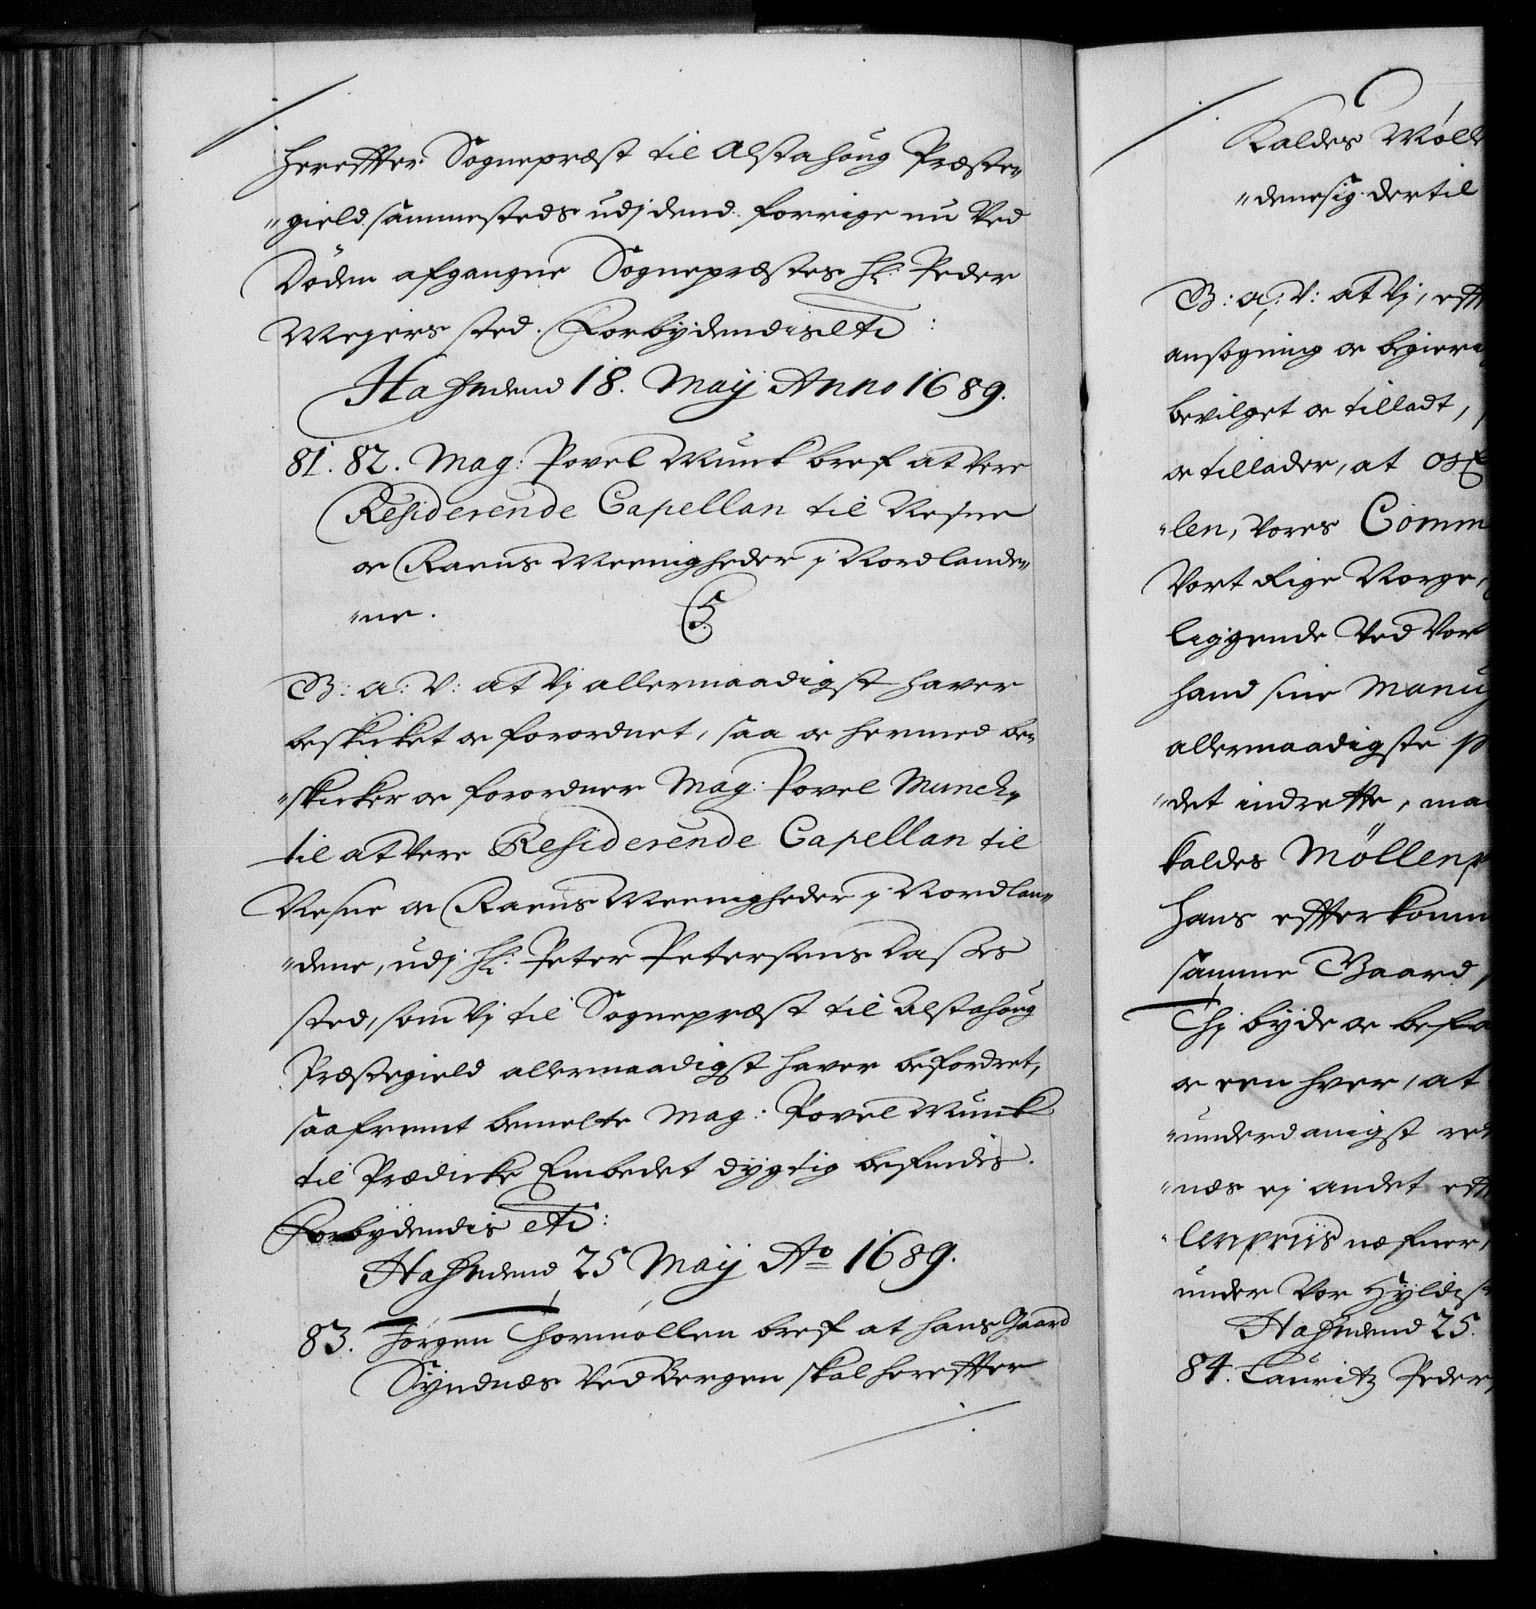 hereffter Sognepræst til Alstahoug Præste„
„gield sammesteds udj dend forrige nu Ved
Døden afgangne Sognepræstes Hr: Peder
Mejers sted. Forbydendis etc:
Hafniæ dend 18. Maij Anno 1689.
81. 82. Mag: Povel Munk bref at Vere
Residerende Capellan til Nesne
oc Ranens Meenigheder j Nordlande„
„ne.
G: a: V: at Vj allernaadigst haver
beskicket oc forordnet, saa oc hermed be„
„skicker oc forordner Mag: Povel Munch,
til at Vere Residerende Capellan til
Nesne oc Ranens Meenigheder j Nordlan„
„dene, udj Hr: Peter Petersens Dasses
sted, som Vj til Sognepræst til Alstahoug
Præstegield allernaadigst haver befordret,
saafremt bemelte Mag: Povel Munk
til Prædicke Embedet dygtig befindis.
Forbydendis etc:
Hafniæ dend 25 Maij Ao 1689.
83. Jørgen Thormøllen bref at hans Gaard
Syndnæs Ved Bergen skal hereffter
Kaldes Møll
„denesig dertil
G: a: V: at Vj, eff
ansøgning oc begiering
bevilget oc tilladt,
oc tillader, at os E
„len, Vores Comm
Vort Rige Norge,
liggende Ved Vor
hand sine Manu
allernaadigste p
„det indrette, maa
kaldes Möllenp
hans effterkomm
samme Gaard,
Thj byde oc befa
oc een hver, at
„underdanigst ret
„næs ej andet eff
„lenpriis næfner,
under Vor Hyldist
Hafniæ dend 25.
84. Lauritz Peders